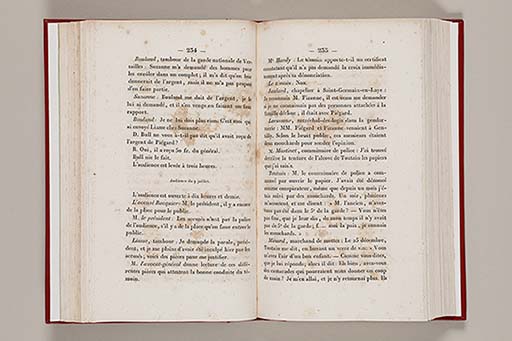 — 234 —
Bouland, tambour de la garde nationale de Versailles : Suzanne m'a demandé des hommes pour
les enrôler dans un complot ; il m'a dit qu'on leur
donnerait de l'argent, mais il ne m'a pas proposé
d'en faire partie.
Suzanne : Bouland me doit de l'argent, je le
lui ai demandé, et il s'en venge en faisant un faux
rapport.
Bouland : Je ne lui dois plus rien. C'est moi qui
ai envoyé Liance chez Suzanne.
D. Bull ne vous a-t-il pas dit qu'il avait reçu de
l'argent de Piégard?
R. Oui, il a reçu 50 fr. du général.
Bull nie le fait.
L'audience est levée à trois heures.
Audience du 9 juillet.
L'audience est ouverte à dix heures et demie.
L'avocat Rocquain : M. le président, il y a encore
de la place pour le public.
M. le président : Les accusés n'ont pas la police
de l'audience, s'il y a de la place qu'on fasse entrer le
public.
tambour : Je demande la parole, président, et je me plains d'avoir été inculpé hier par les
accusés ; voici des pièces pour me justifier.
M. l'avocat-général donne lecture de ces différentes pièces qui attestent la bonne conduite du témoin.
— 235 —
Me Hardy : Le témoin apporte-t-il un certificat
constatant qu'il n'a pas demandé la croix immédiatement après sa dénonciation.
Le témoin : Non.
chapelier à Saint-Germain-en-Laye :
Je connais M. Fizanne, il est venu me demander
si je ne connaissais pas des personnes attachées à la
famille déchue ; il était avec Piégard.
maréchal-des-logis dans la gendarmerie : MM. Piégard et Fizanne venaient à Gentilly. Selon le bruit public, ces messieurs étaient
des mouchards pour sonder l'opinion.
M. Martinet, commissaire de police : J'ai trouvé
derrière la tenture de l'alcove de Toutain les papiers
que j'ai saisis.
Toutain : M. le commissaire de police a commencé par ouvrir le papier. J'avais été dénoncé
comme conspirateur, même que depuis un mois j'étais suivi par des mouchards. Un soir, plusieurs
m'accostent et me disent : « M. l'ancien, n'avez-
vous pas été dans le 5e de la garde? — Vous n'êtes
pas fins, que je leur dis, de mon temps il n'y avait
pas de 5e de la garde ; f..... moi la paix, je connais
les mouchards. »
Ménard, marchand de mottes : Le 25 décembre,
Toutain me dit, en buvant un verre de vin : « Vous
m'avez l'air d'un bon enfant. — Comme vous dites,
que je lui réponds ; alors il dit : Eh bien, avez-vous
des camarades qui pourraient nous donner un coup
de main? Je m'en allai, et je n'y retournai plus. Ils